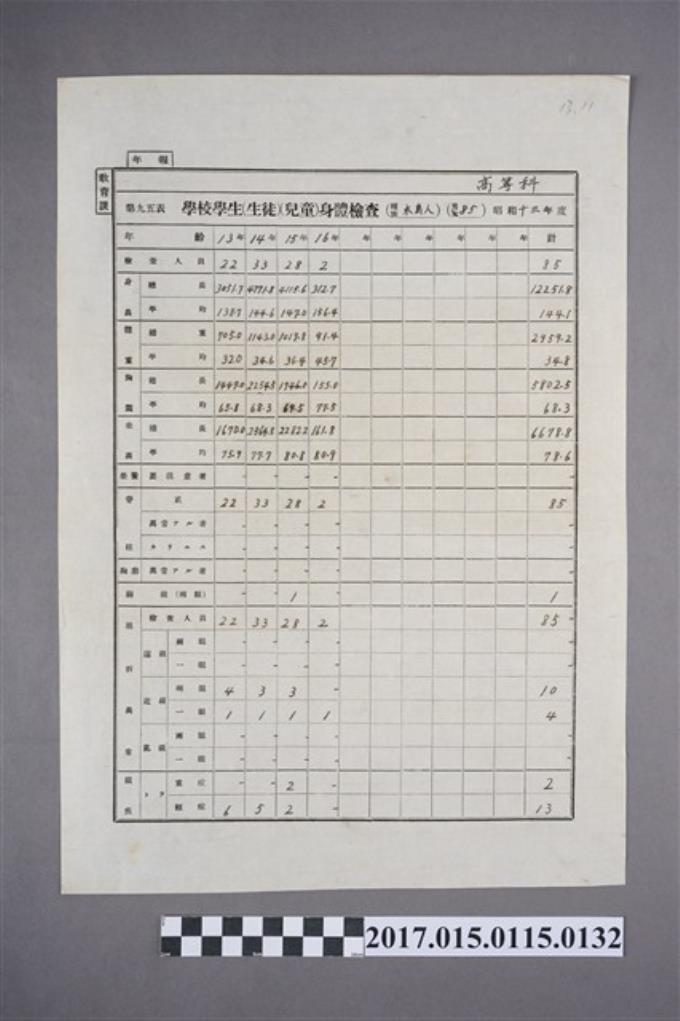 13.11
年報
教育課
高等科
第九五表 學校學生(生徒)(兒童)身體檢查 (種族 本島人) (85) 昭和十三年度
年齡 13年 14年 15年 16年 年 年 年 年 年 年 計
檢查人員 22 33 28 2 85
身長 總長 3051.7 4771.8 4115.6 312.7 12251.8
平均 138.7 144.6 147.0 156.4 144.1
體重 總重 705.0 1143.0 1019.8 91.4 2959.2
平均 32.0 34.6 36.4 45.7 34.8
胸圍 總長 1449.0 2254.5 1946.0 155.0 5802.5
平均 65.8 68.3 69.5 77.5 68.3
坐高 總長 1670.0 2564.8 2282.2 161.8 6678.8
平均 75.9 77.7 80.8 80.9 78.6
要注意者 - - - - -
脊柱 正 22 33 28 2 85
異常アル者 - - - - -
カリエス - - - - -
胸廓 異常アル者 - - - - -
視(兩眼) - - 1 - 1
屈折異常 檢查人員 22 33 28 2 85
遠視 兩眼 - - - - -
一眼 - - - - -
近視 兩眼 4 3 3 - 10
一眼 1 1 1 1 4
亂視 兩眼 - - - - -
一眼 - - - - -
眼疾 トラ 重症 - - 2 - 2
輕症 6 5 2 - 13
2017.015.0115.0132